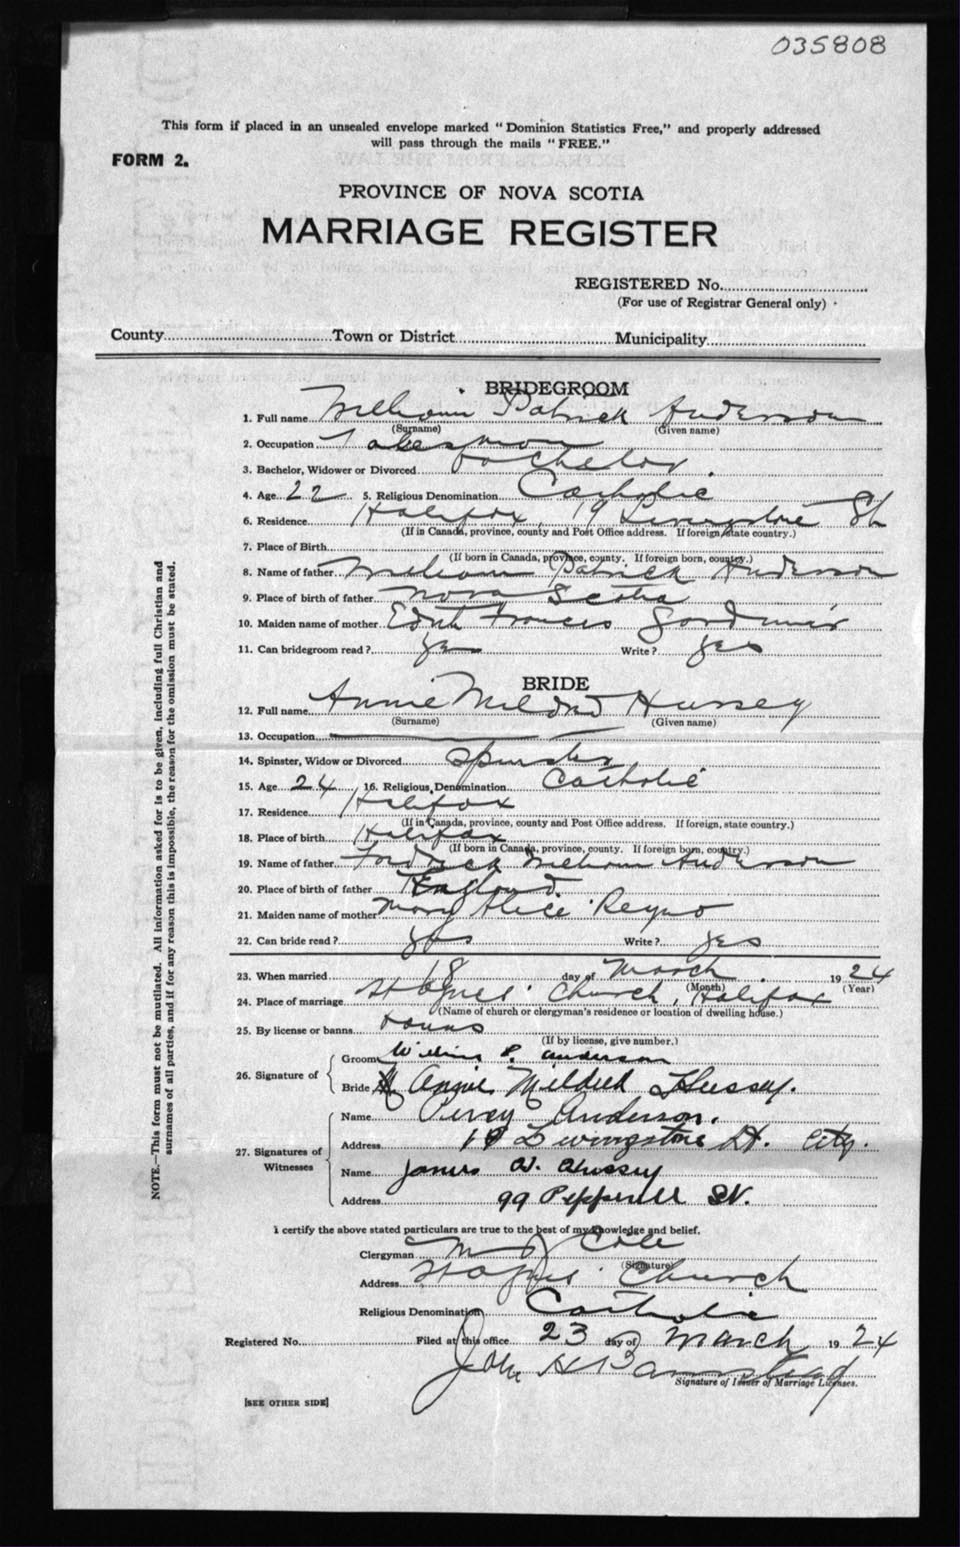 035808
This form if placed in an unsealed envelope marked "Dominion Statistics Free," and properly addressed
will pass through the mails "FREE."
FORM 2.
PROVINCE OF NOVA SCOTIA
MARRIAGE REGISTER
REGISTERED No.
(For use of Registrar General only)
County Town or District Municipality
BRIDEGROOM
1. Full name William Patrick Anderson
(Surname) (Given name)
2. Occupation
3. Bachelor, Widower or Divorced bachelor
4. Age 22 5. Religious Denomination Catholic
6. Residence Halifax, 19 Livingstone St
(If in Canada, province, county and Post Office address. If foreign, state country.)
7. Place of Birth
(If born in Canada, province, county. If foreign born, country.)
8. Name of father William Patrick Anderson
9. Place of birth of father Nova Scotia
10. Maiden name of mother Edith Frances
11. Can bridegroom read? yes Write? yes
BRIDE
12. Full name Annie Mildred Hussey
(Surname) (Given name)
13. Occupation
14. Spinster, Widow or Divorced spinster
15. Age 24 16. Religious Denomination Catholic
17. Residence Halifax
(If in Canada, province, county and Post Office address. If foreign, state country.)
18. Place of birth Halifax
(If born in Canada, province, county. If foreign born, country.)
19. Name of father William Anderson
20. Place of birth of father England
21. Maiden name of mother Mary Alice Reyno
22. Can bride read? yes Write? yes
23. When married 18 day of March 1924
(Month) (Year)
24. Place of marriage St Agnes' Church, Halifax
(Name of church or clergyman's residence or location of dwelling house.)
25. By license or banns banns
(If by license, give number.)
26. Signature of
Groom William P. Anderson
Bride Annie Mildred Hussey.
27. Signatures of Witnesses
Name Percy Anderson.
Address 19 Livingstone St. City.
Name James W. Hussey
Address 99 Pepperell St.
I certify the above stated particulars are true to the best of my knowledge and belief.
Clergyman Cole
(Signature)
Address St Agnes' Church
Religious Denomination Catholic
Registered No. Filed at this office 23 day of March 1924
John H Barnstead
Signature of Issuer of Marriage Licenses.
[SEE OTHER SIDE]
NOTE.—This form must not be mutilated. All information asked for is to be given, including full Christian and
surnames of all parties, and if for any reason this is impossible, the reason for the omission must be stated.